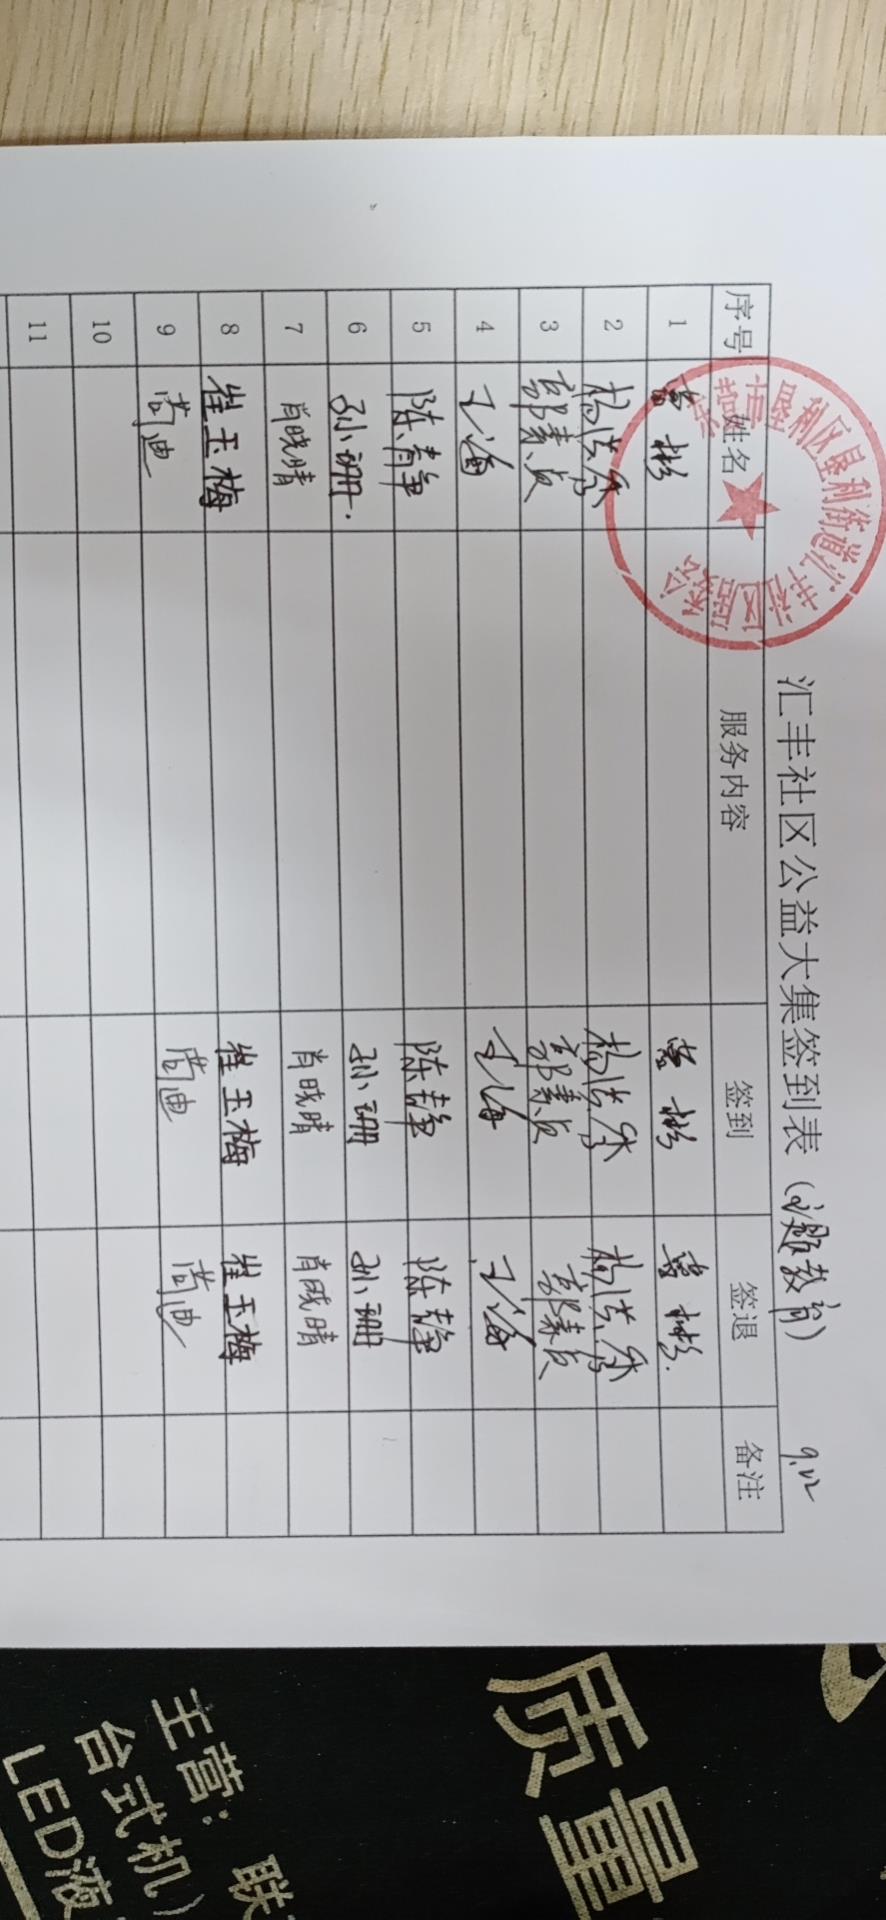 汇丰社区公益大集签到表（习题教育） 9.22
序号 姓名 服务内容 签到 签退 备注
1 彬 彬 彬
2 杨洪香 杨洪香 杨洪香
3 郭秦贞 郭秦贞 郭秦贞
4 王海 王海 王海
5 陈静 陈静 陈静
6 孙珊. 孙珊 孙珊
7 肖晓晴 肖晓晴 肖晓晴
8 崔玉梅 崔玉梅 崔玉梅
9 尚迪 尚迪 尚迪
10
11
市垦利区垦利街道汇丰社区居委会
质量
主营：联
台式机）
LED液